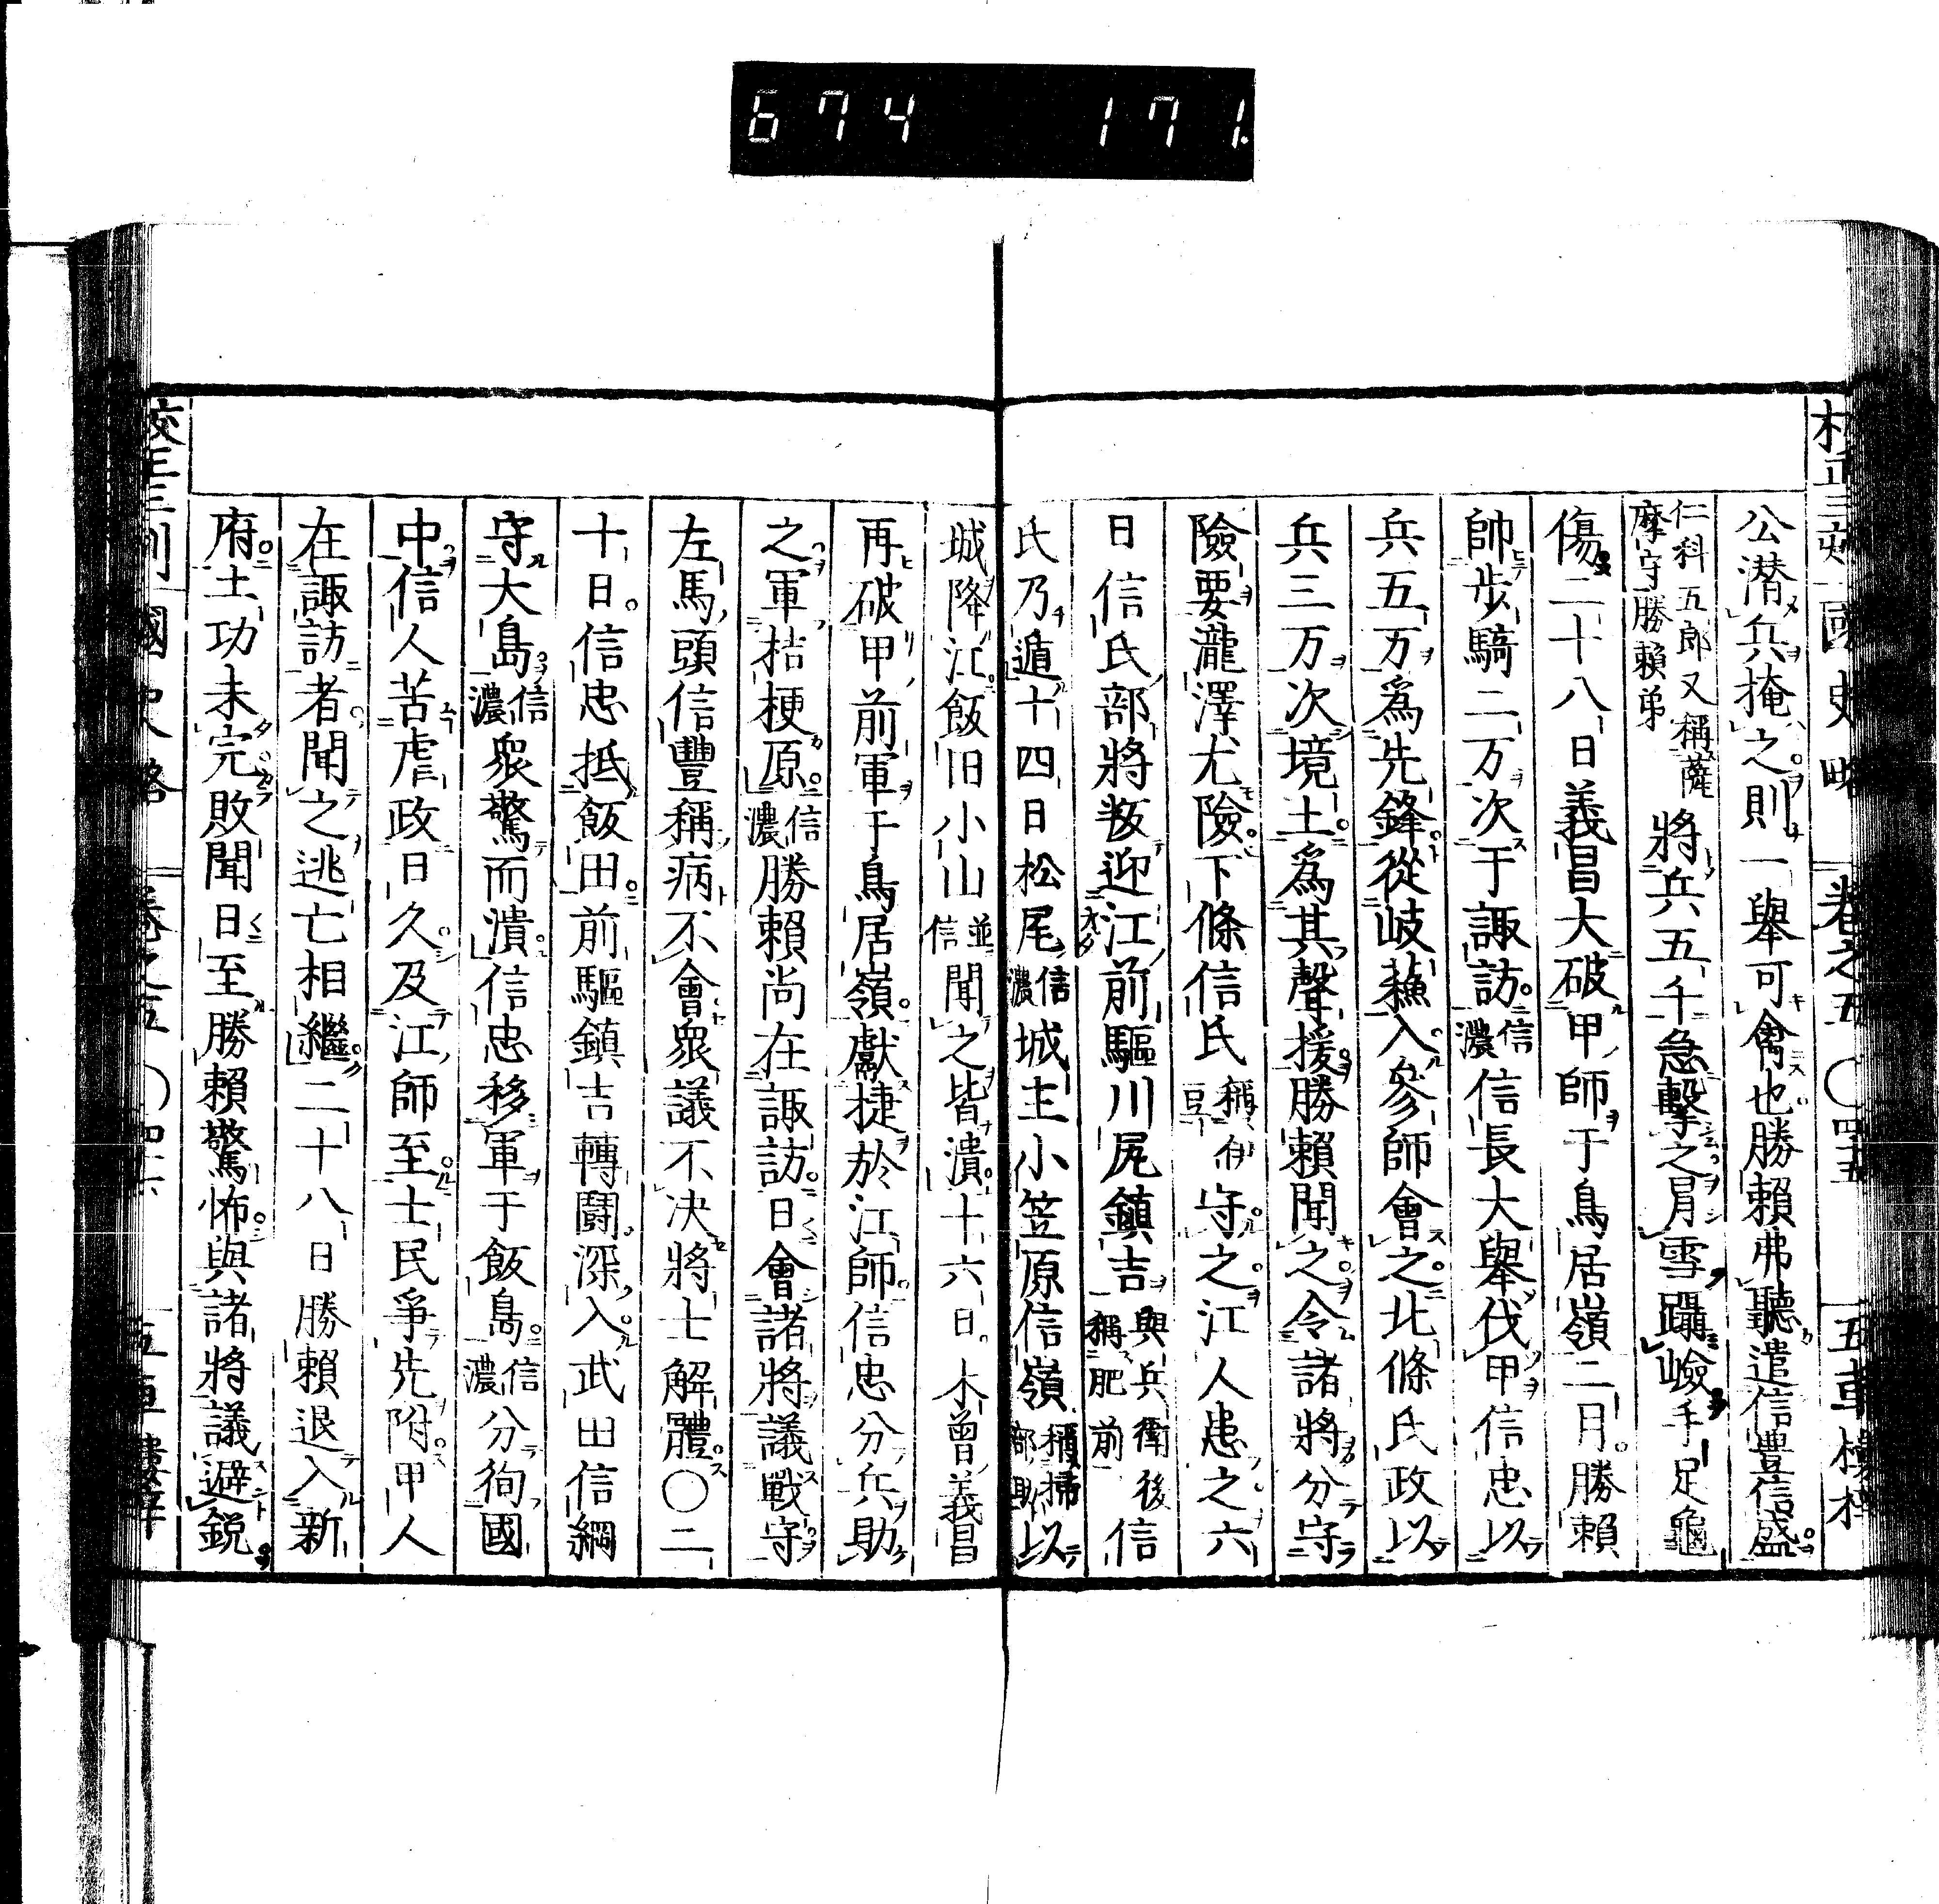 674 171
校正三刻國史略 卷之五 〇四五 五車樓梓
公潜兵掩之則一舉可禽也勝賴弗聽遣信豊信盛
仁科五郎又稱薩摩守勝賴弟 將兵五千急擊之冐雪躡嶮手足龜
傷二十八日義昌大破甲師于鳥居嶺二月勝賴
帥步騎二万次于諏訪信濃信長大舉伐甲信忠以
兵五万爲先鋒從岐蘓入參師會之北條氏政以
兵三万次境上爲其聲援勝賴聞之令諸將分守
險要瀧澤尤險下條信氏稱伊豆守守之江人患之六
日信氏部將叛迎江前驅川尻鎮吉與兵衛後稱肥前信
氏乃遁十四日松尾信濃城主小笠原信嶺稱掃部助以
城降江飯田小山並信聞之皆潰十六日木曾義昌
再破甲前軍于鳥居嶺獻捷於江師信忠分兵助
之軍桔梗原信濃勝賴尚在諏訪日會諸將議戰守
左馬頭信豐稱病不會衆議不决將士解體〇二
十日信忠抵飯田前驅鎮吉轉鬪深入武田信綱
守大島信濃衆驚而潰信忠移軍于飯島信濃分徇國
中信人苦虐政日久及江師至士民爭先附甲人
在諏訪者聞之逃亡相繼二十八日勝賴退入新
府土功未完敗聞日至勝賴驚怖與諸將議避銳
校正三刻國史略 卷之五 〇四六 五車樓梓